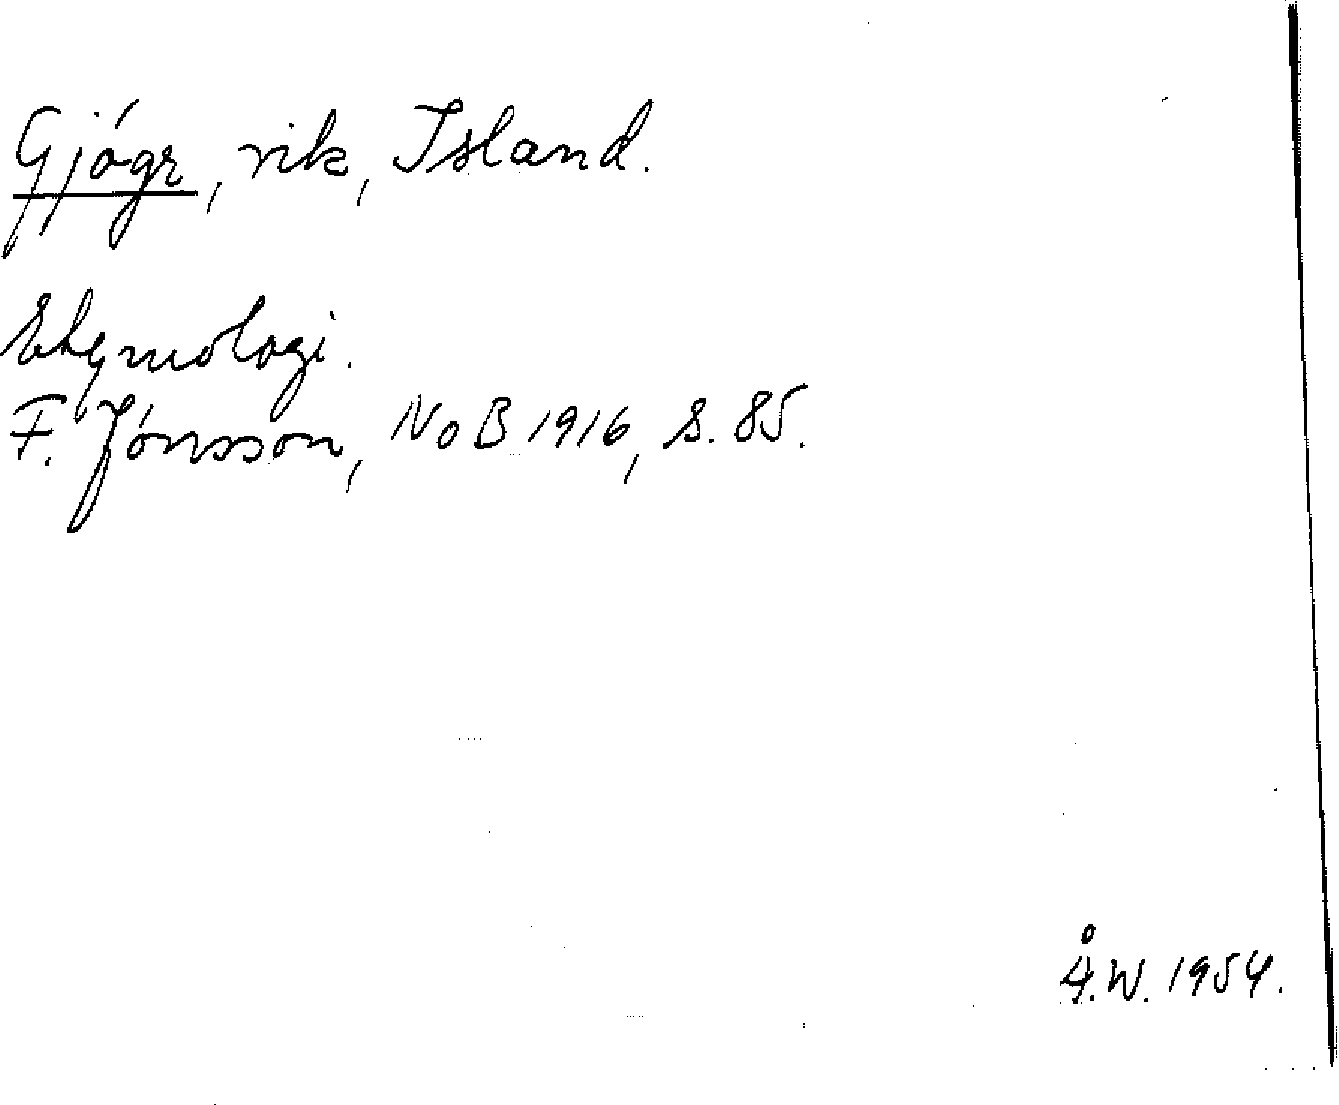 Gjógr, vik, Island.
Etymologi.
F. Jónsson, NoB 1916, s. 85.
Å.W. 1954.